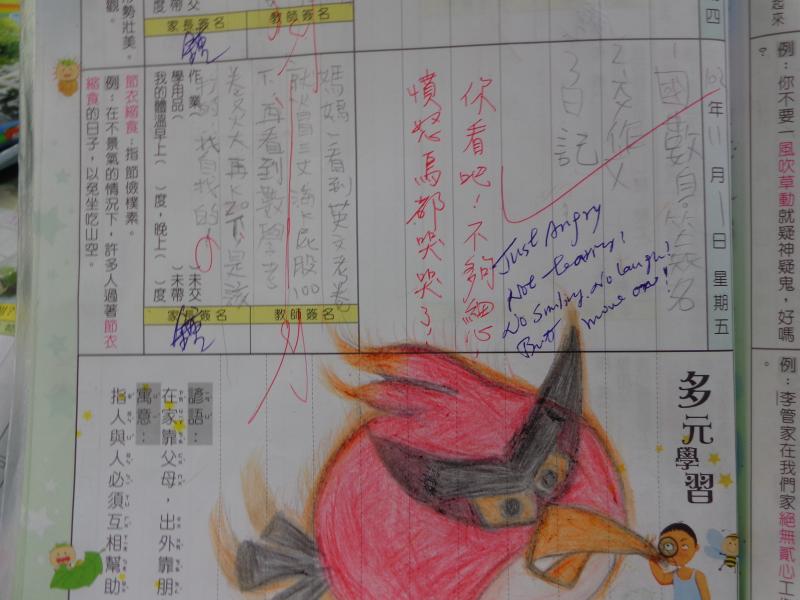 起來
例：你不要一風吹草動就疑神疑鬼，好嗎
？
例：李管家在我們家絕無貳心
四
年11月1日星期五
1國數自簽名
2交作文
3日記
Just Angry
Not teary,
No smiling. No laugh!
But move on!
你看吧！不夠細心！
憤怒鳥都哭哭了！
媽媽一看到英文考卷
就火冒三丈
屁股100
下，再看到數學考
卷
大再
20下，是
我自找的！
作業（ ）未交
學用品（ ）未帶
我的體溫早上（ ）度，晚上（ ）度
教師簽名
家長簽名
教師簽名
家長簽名
節衣縮食：指節儉樸素。
例：在不景氣的情況下，許多人過著節衣
縮食的日子，以免坐吃山空。
形勢壯美。
觀。
多元學習
諺語：
在家靠父母，出外靠朋
寓意：
指人與人必須互相幫助